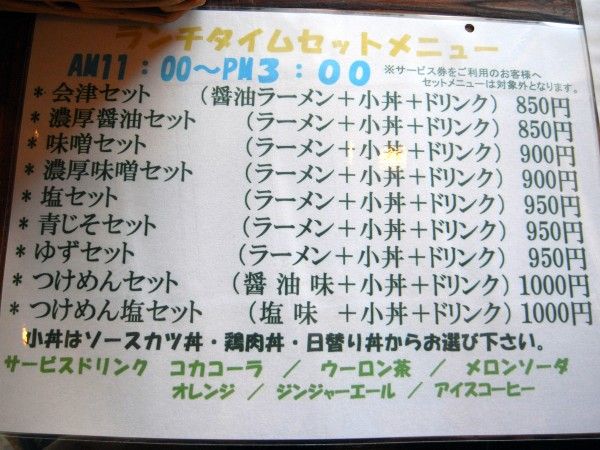 ランチタイムセットメニュー
AM11:00～PM3:00
※サービス券をご利用のお客様へ
セットメニューは対象外となります。
* 会津セット （醤油ラーメン＋小丼＋ドリンク）850円
* 濃厚醤油セット （ラーメン＋小丼＋ドリンク）850円
* 味噌セット （ラーメン＋小丼＋ドリンク）900円
* 濃厚味噌セット （ラーメン＋小丼＋ドリンク）900円
* 塩セット （ラーメン＋小丼＋ドリンク）950円
* 青じそセット （ラーメン＋小丼＋ドリンク）950円
* ゆずセット （ラーメン＋小丼＋ドリンク）950円
* つけめんセット （醤油味＋小丼＋ドリンク）1000円
* つけめん塩セット （塩味＋小丼＋ドリンク）1000円
小丼はソースカツ丼・鶏肉丼・日替り丼からお選び下さい。
サービスドリンク コカコーラ ／ ウーロン茶 ／ メロンソーダ
オレンジ ／ ジンジャーエール ／ アイスコーヒー